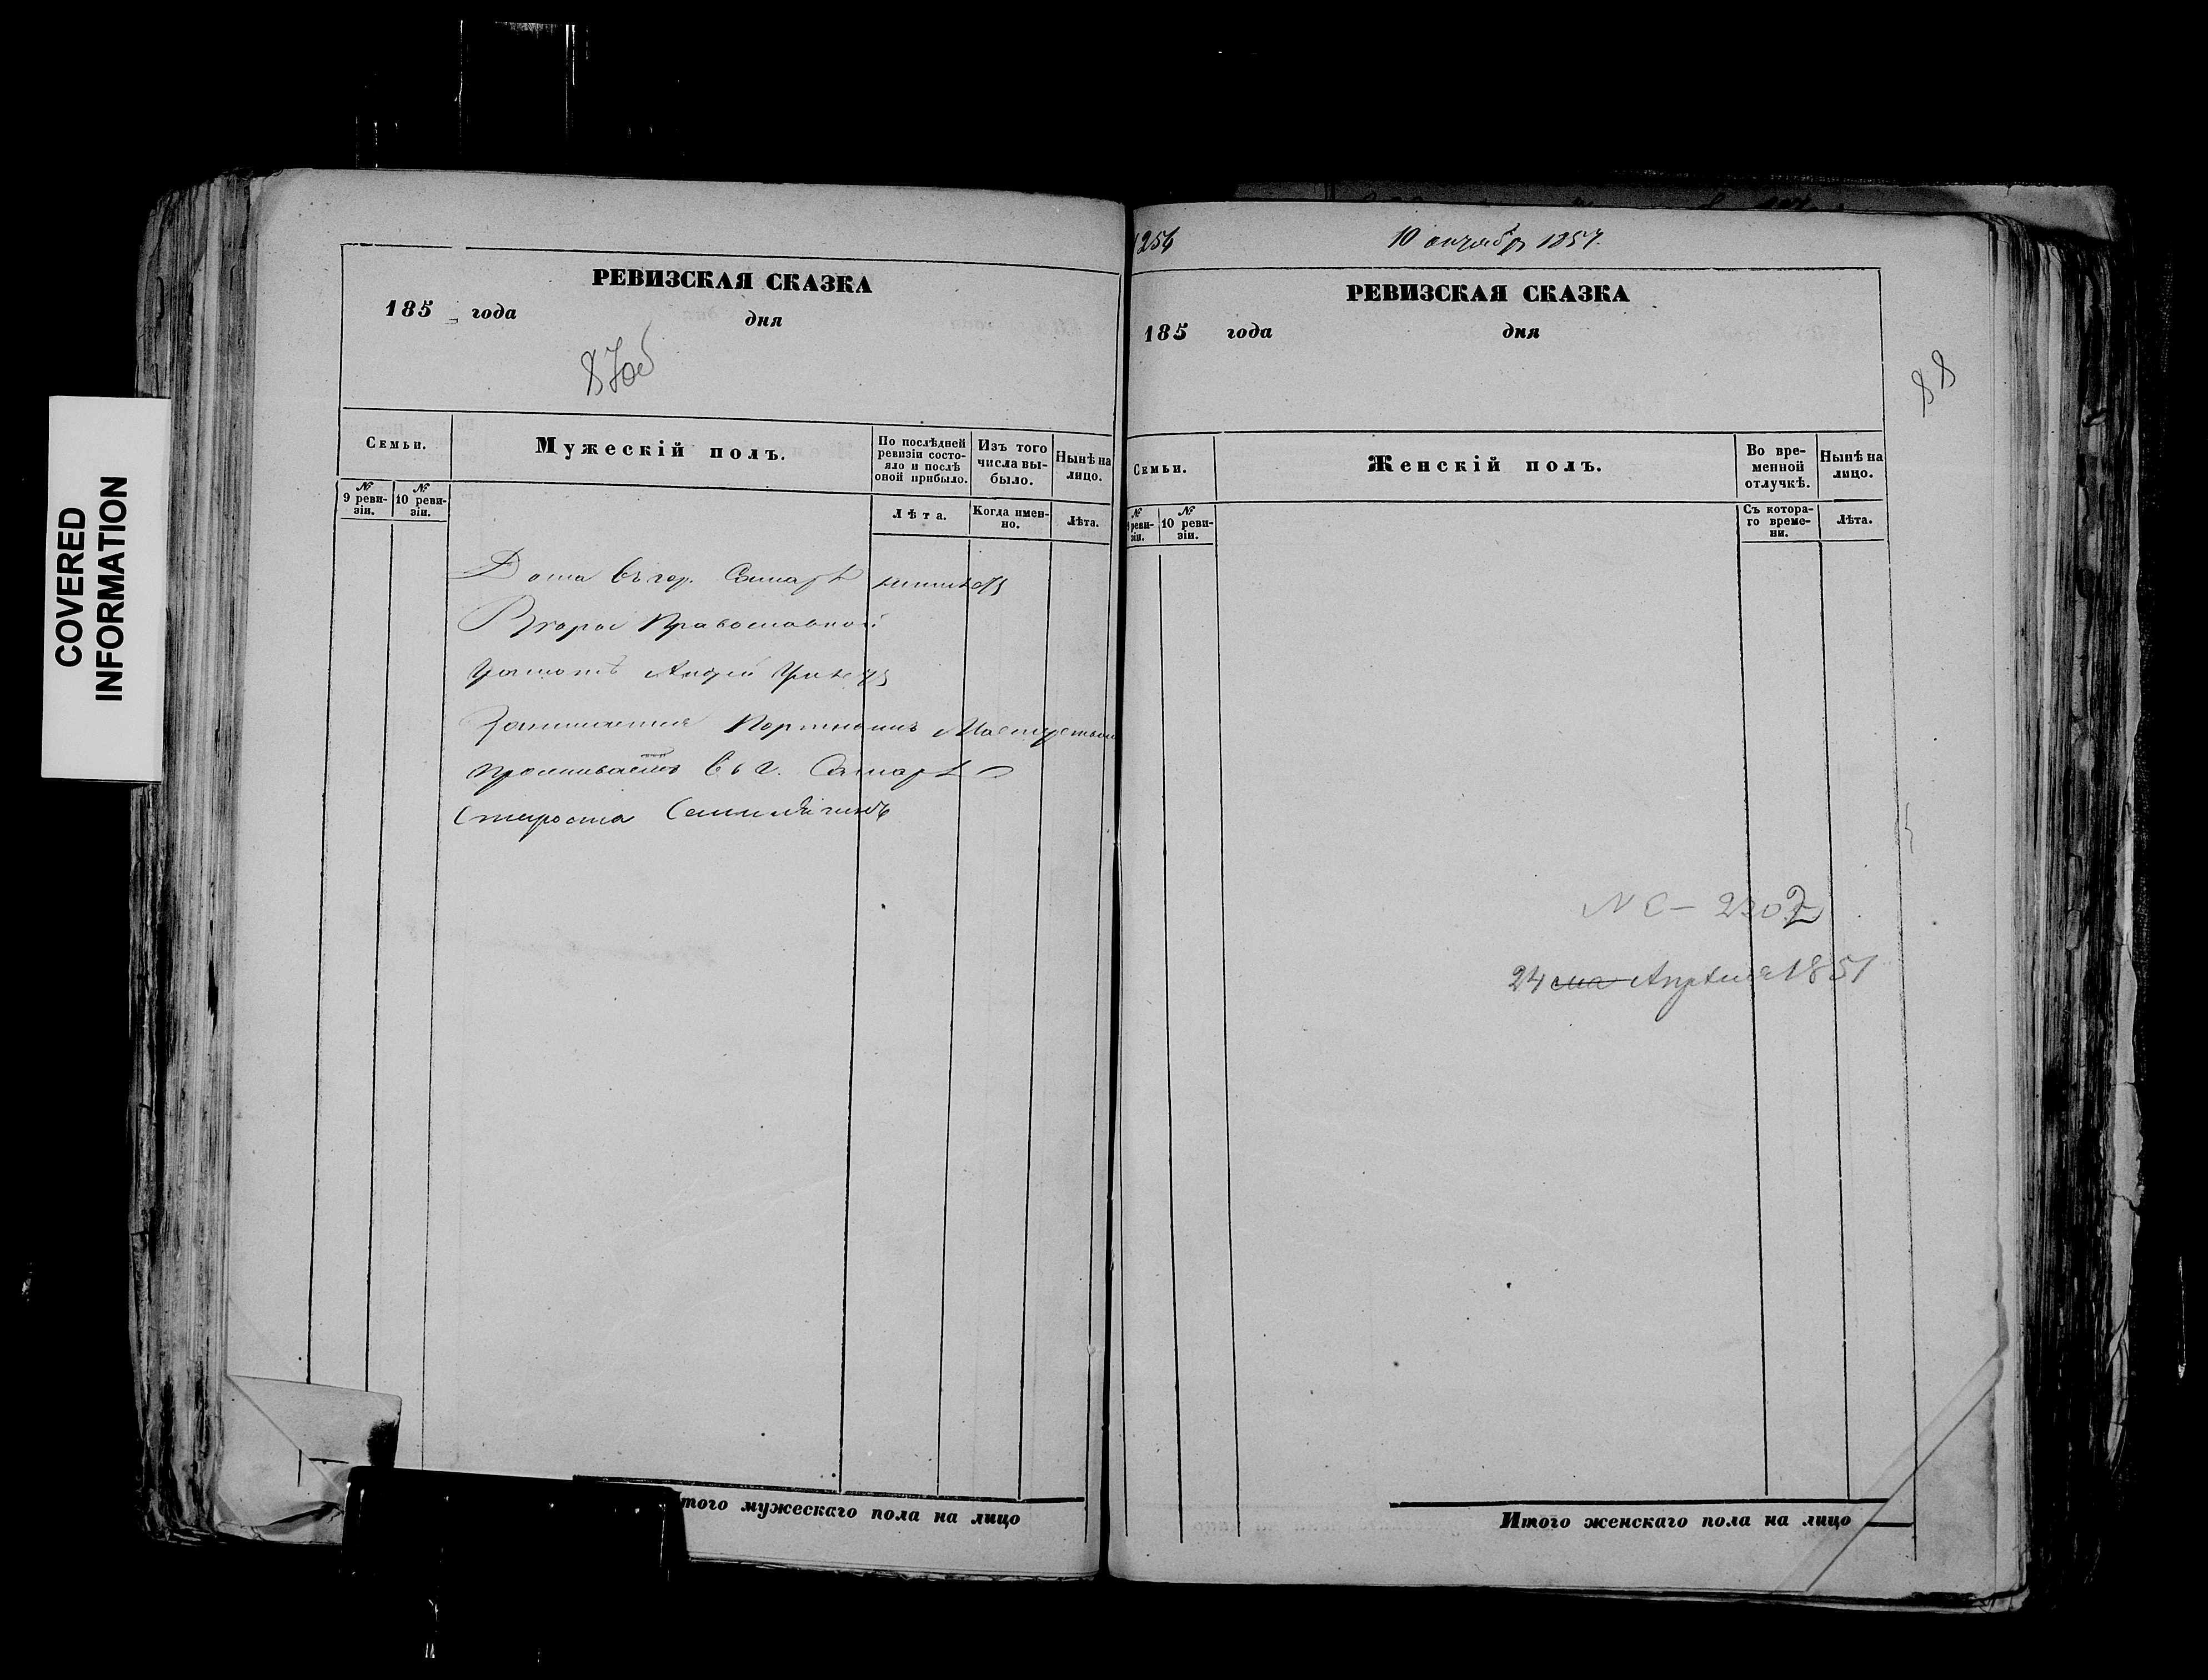 COVERED
INFORMATION
РЕВИЗСКАЯ СКАЗКА
185 года дня
87об
Семьи.
Мужескій полъ.
По послѣдней ревизіи состояло и послѣ оной прибыло.
Изъ того числа выбыло.
Нынѣ на лицо.
№ 9 ревизіи.
№ 10 ревизіи.
Лѣта.
Когда именно.
Лѣта.
Дома въ гор. Самарѣ неимѣетъ
Вѣры Православной
Грамотѣ
Занимается Портнымъ Мастерствомъ
проживаетъ въ г. Самарѣ
Староста
того мужескаго пола на лицо
1256
10 октябр 1857.
РЕВИЗСКАЯ СКАЗКА
185 года дня
88
Семьи.
Женскій полъ.
Во временной отлучкѣ.
Нынѣ на лицо.
№ 9 ревизіи.
№ 10 ревизіи.
Съ котораго времени.
Лѣта.
24 Апрѣля 1851
Итого женскаго пола на лицо